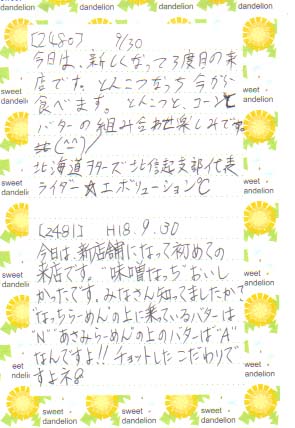 [2480] 9/30
今日は、新しくなって3度目の来
店です。とんこつなっち 今から
食べます。 とんこつと、コーンと
バターの組み合わせ楽しみです。
(^^)/
北海道ヨターズ北信起支部代表
ライダー☆エボリューション℃
[2481] H18.9.30
今日は、新店舗になって初めての
来店です。"味噌なっち"おいし
かったです。みなさん知ってましたか?
"なっちらーめん"の上に来ているバターは
"N" "あさみらーめん"の上のバターは"A"
なんですよ!! チョットしたこだわりで
すよネ
sweet
dandelion
sweet
dandelion
sweet
dandelion